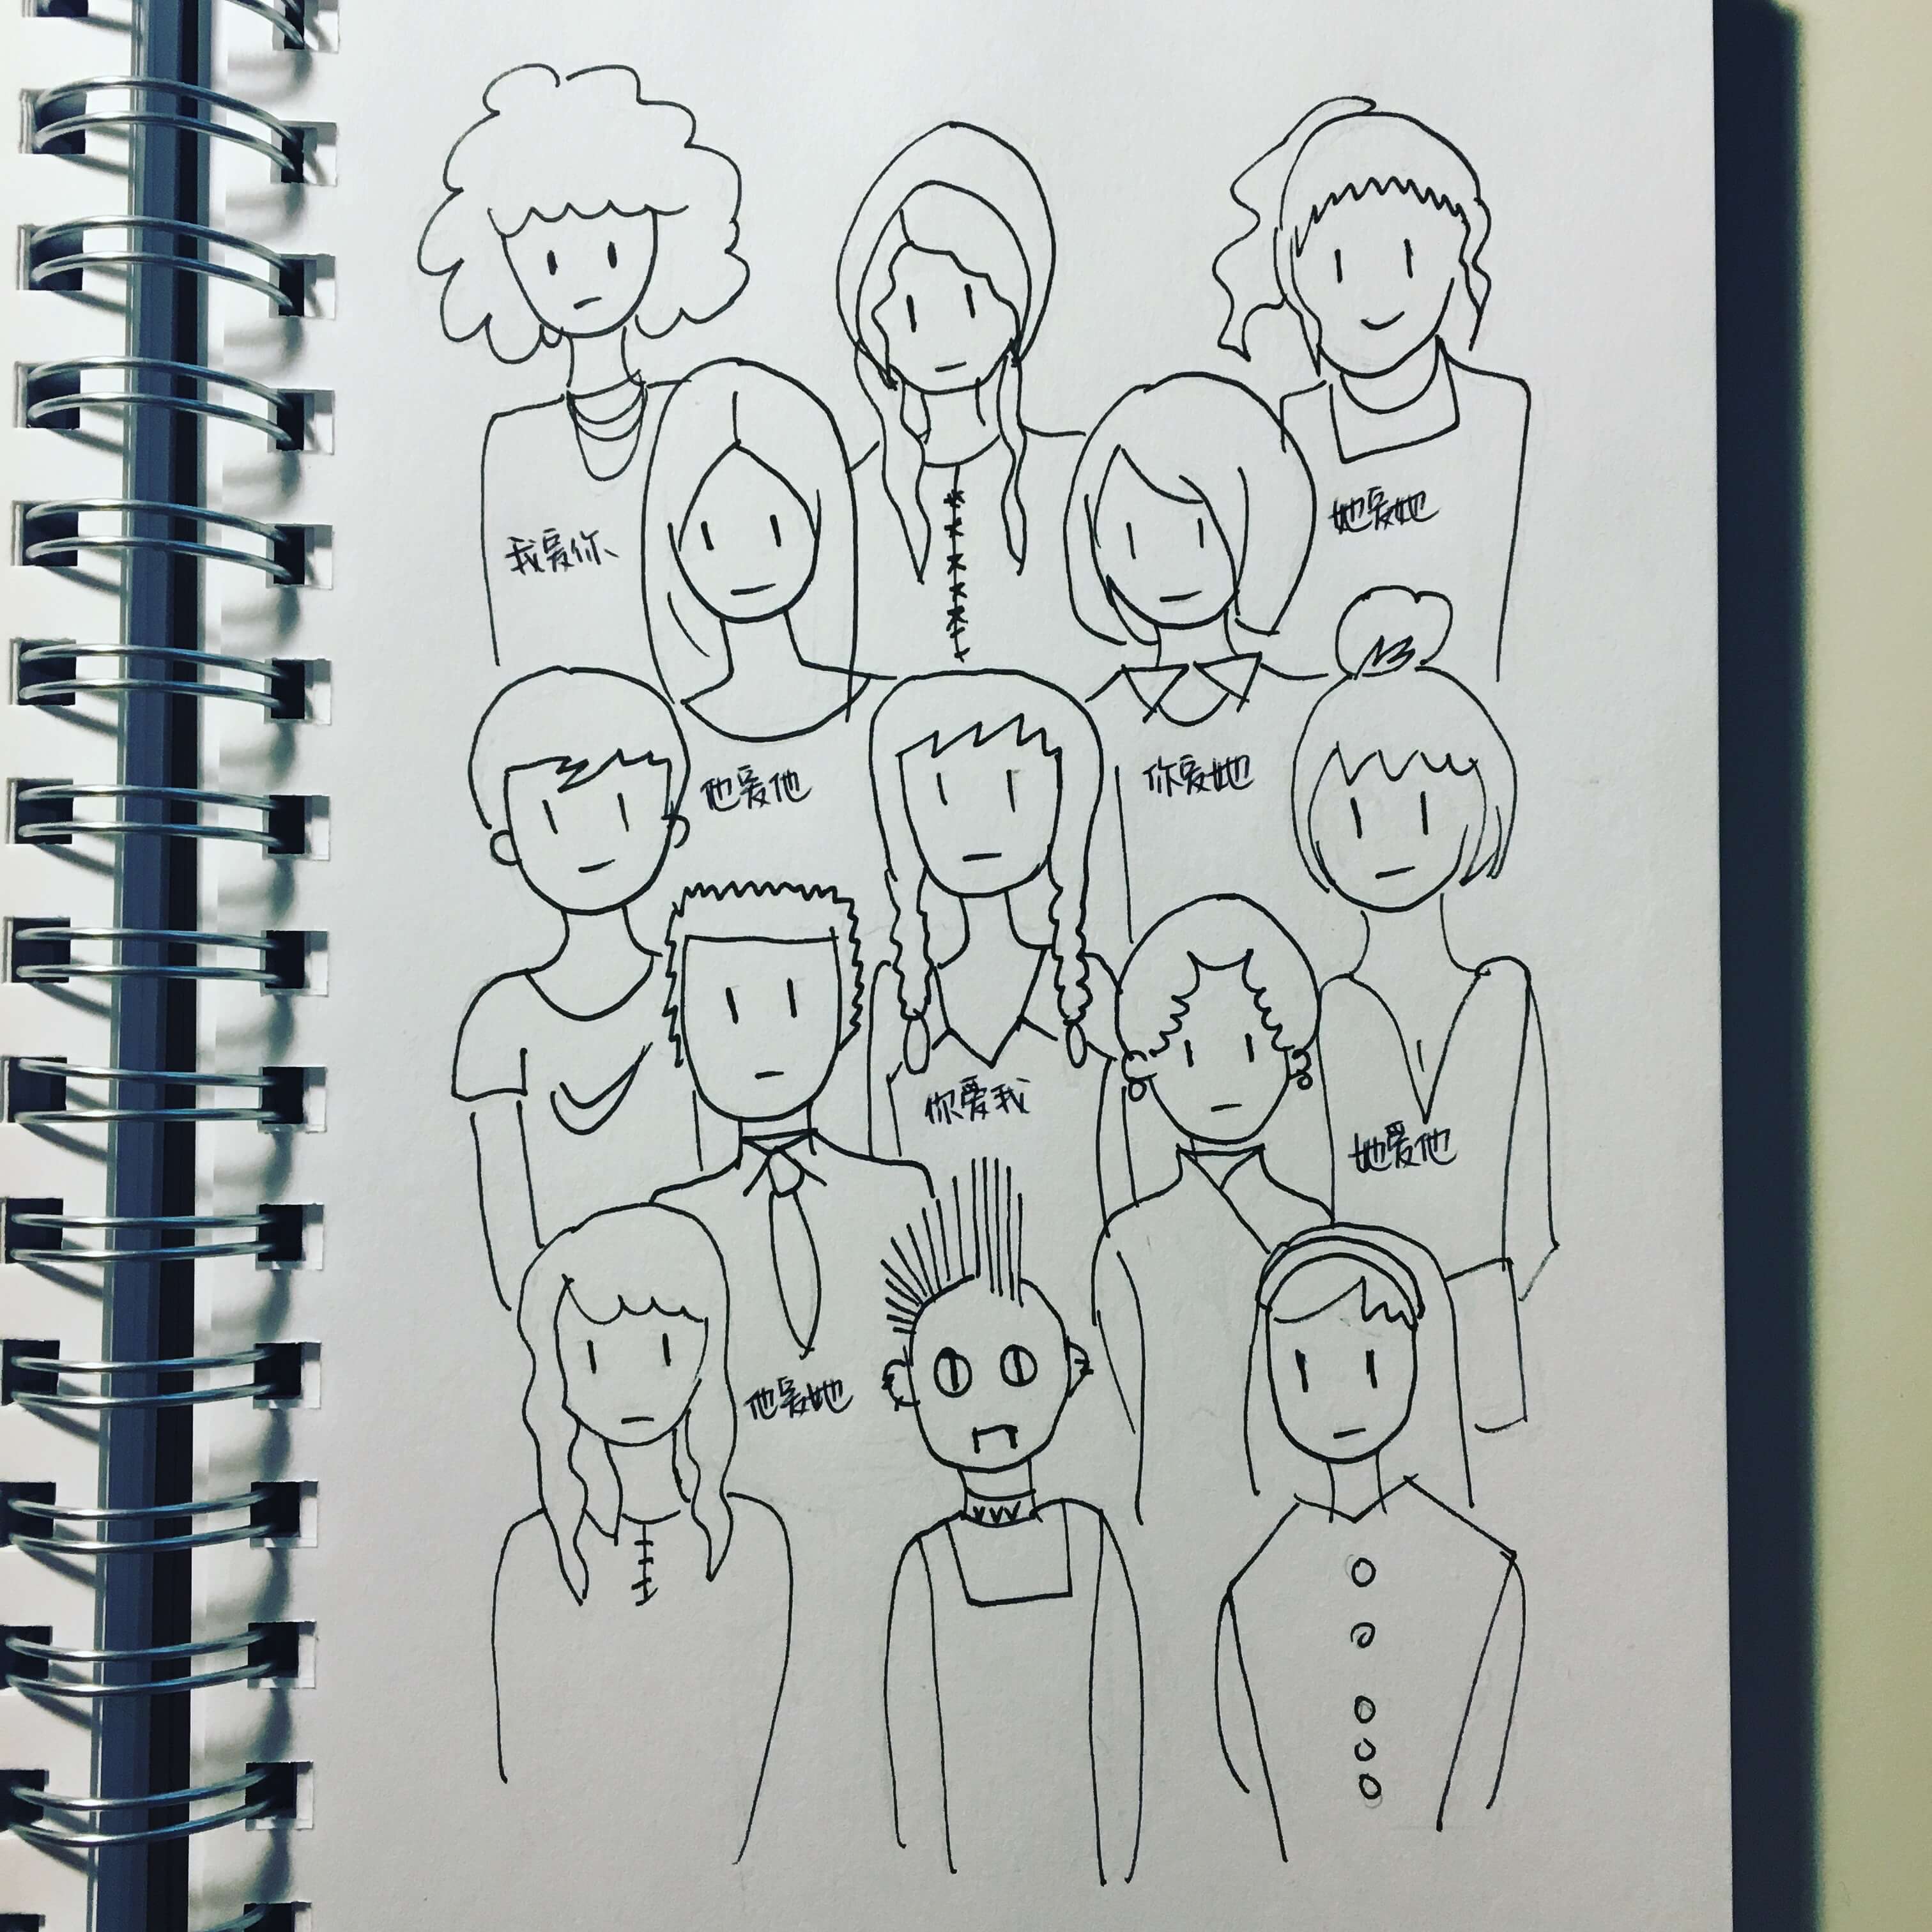 我爱你
她爱她
他爱他
你爱她
你爱我
她爱他
他爱她